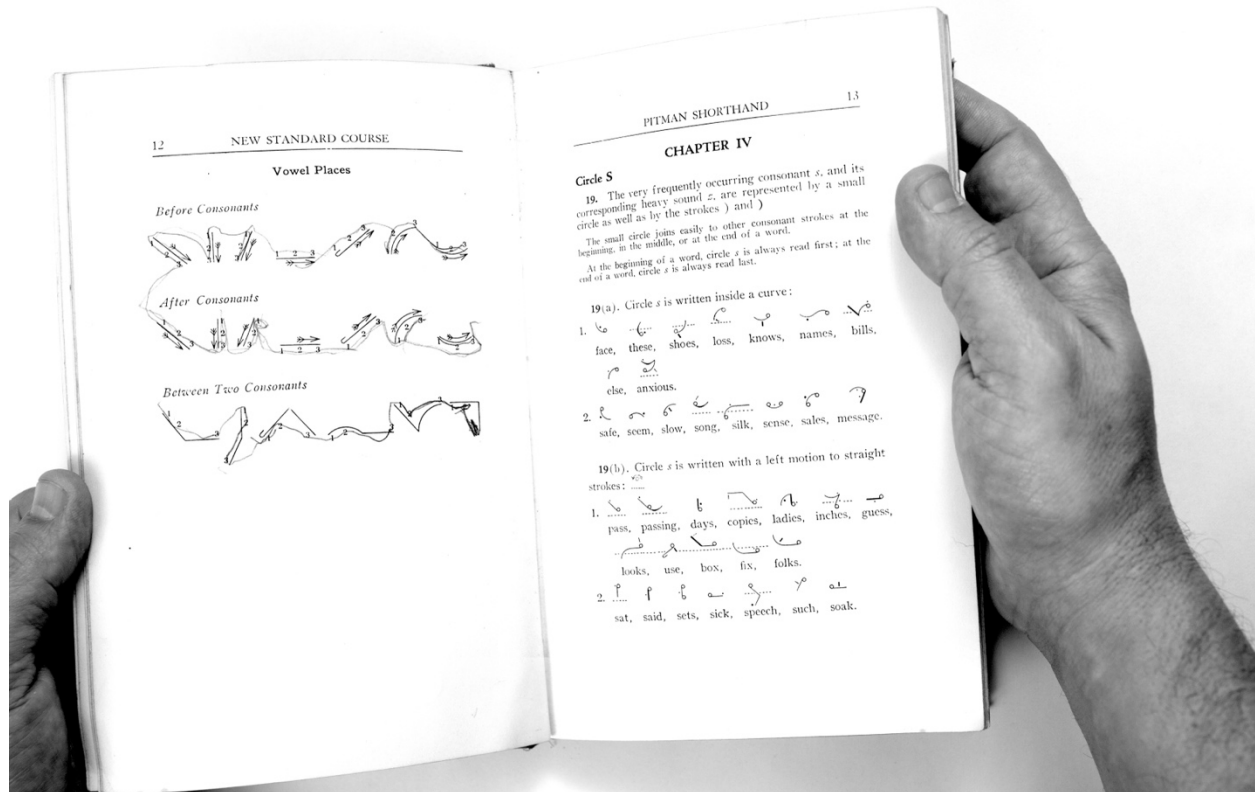 12 NEW STANDARD COURSE
Vowel Places
Before Consonants
1 2 2 1 2 3 1 2 3 2 1 2 3
After Consonants
1 2 1 2 3 1 2 3 1 2 3 1 2 3 1 2 3
Between Two Consonants
1 3 2 3 1 2 3 1 2 3 1 2 3
PITMAN SHORTHAND 13
CHAPTER IV
Circle S
19. The very frequently occurring consonant s, and its
corresponding heavy sound z, are represented by a small
circle as well as by the strokes ) and )
The small circle joins easily to other consonant strokes at the
beginning, in the middle, or at the end of a word.
At the beginning of a word, circle s is always read first; at the
end of a word, circle s is always read last.
19(a). Circle s is written inside a curve:
1.
face, these, shoes, loss, knows, names, bills,
else, anxious.
2.
safe, seem, slow, song, silk, sense, sales, message.
19(b). Circle s is written with a left motion to straight
strokes:
1.
pass, passing, days, copies, ladies, inches, guess,
looks, use, box, fix, folks.
2.
sat, said, sets, sick, speech, such, soak.